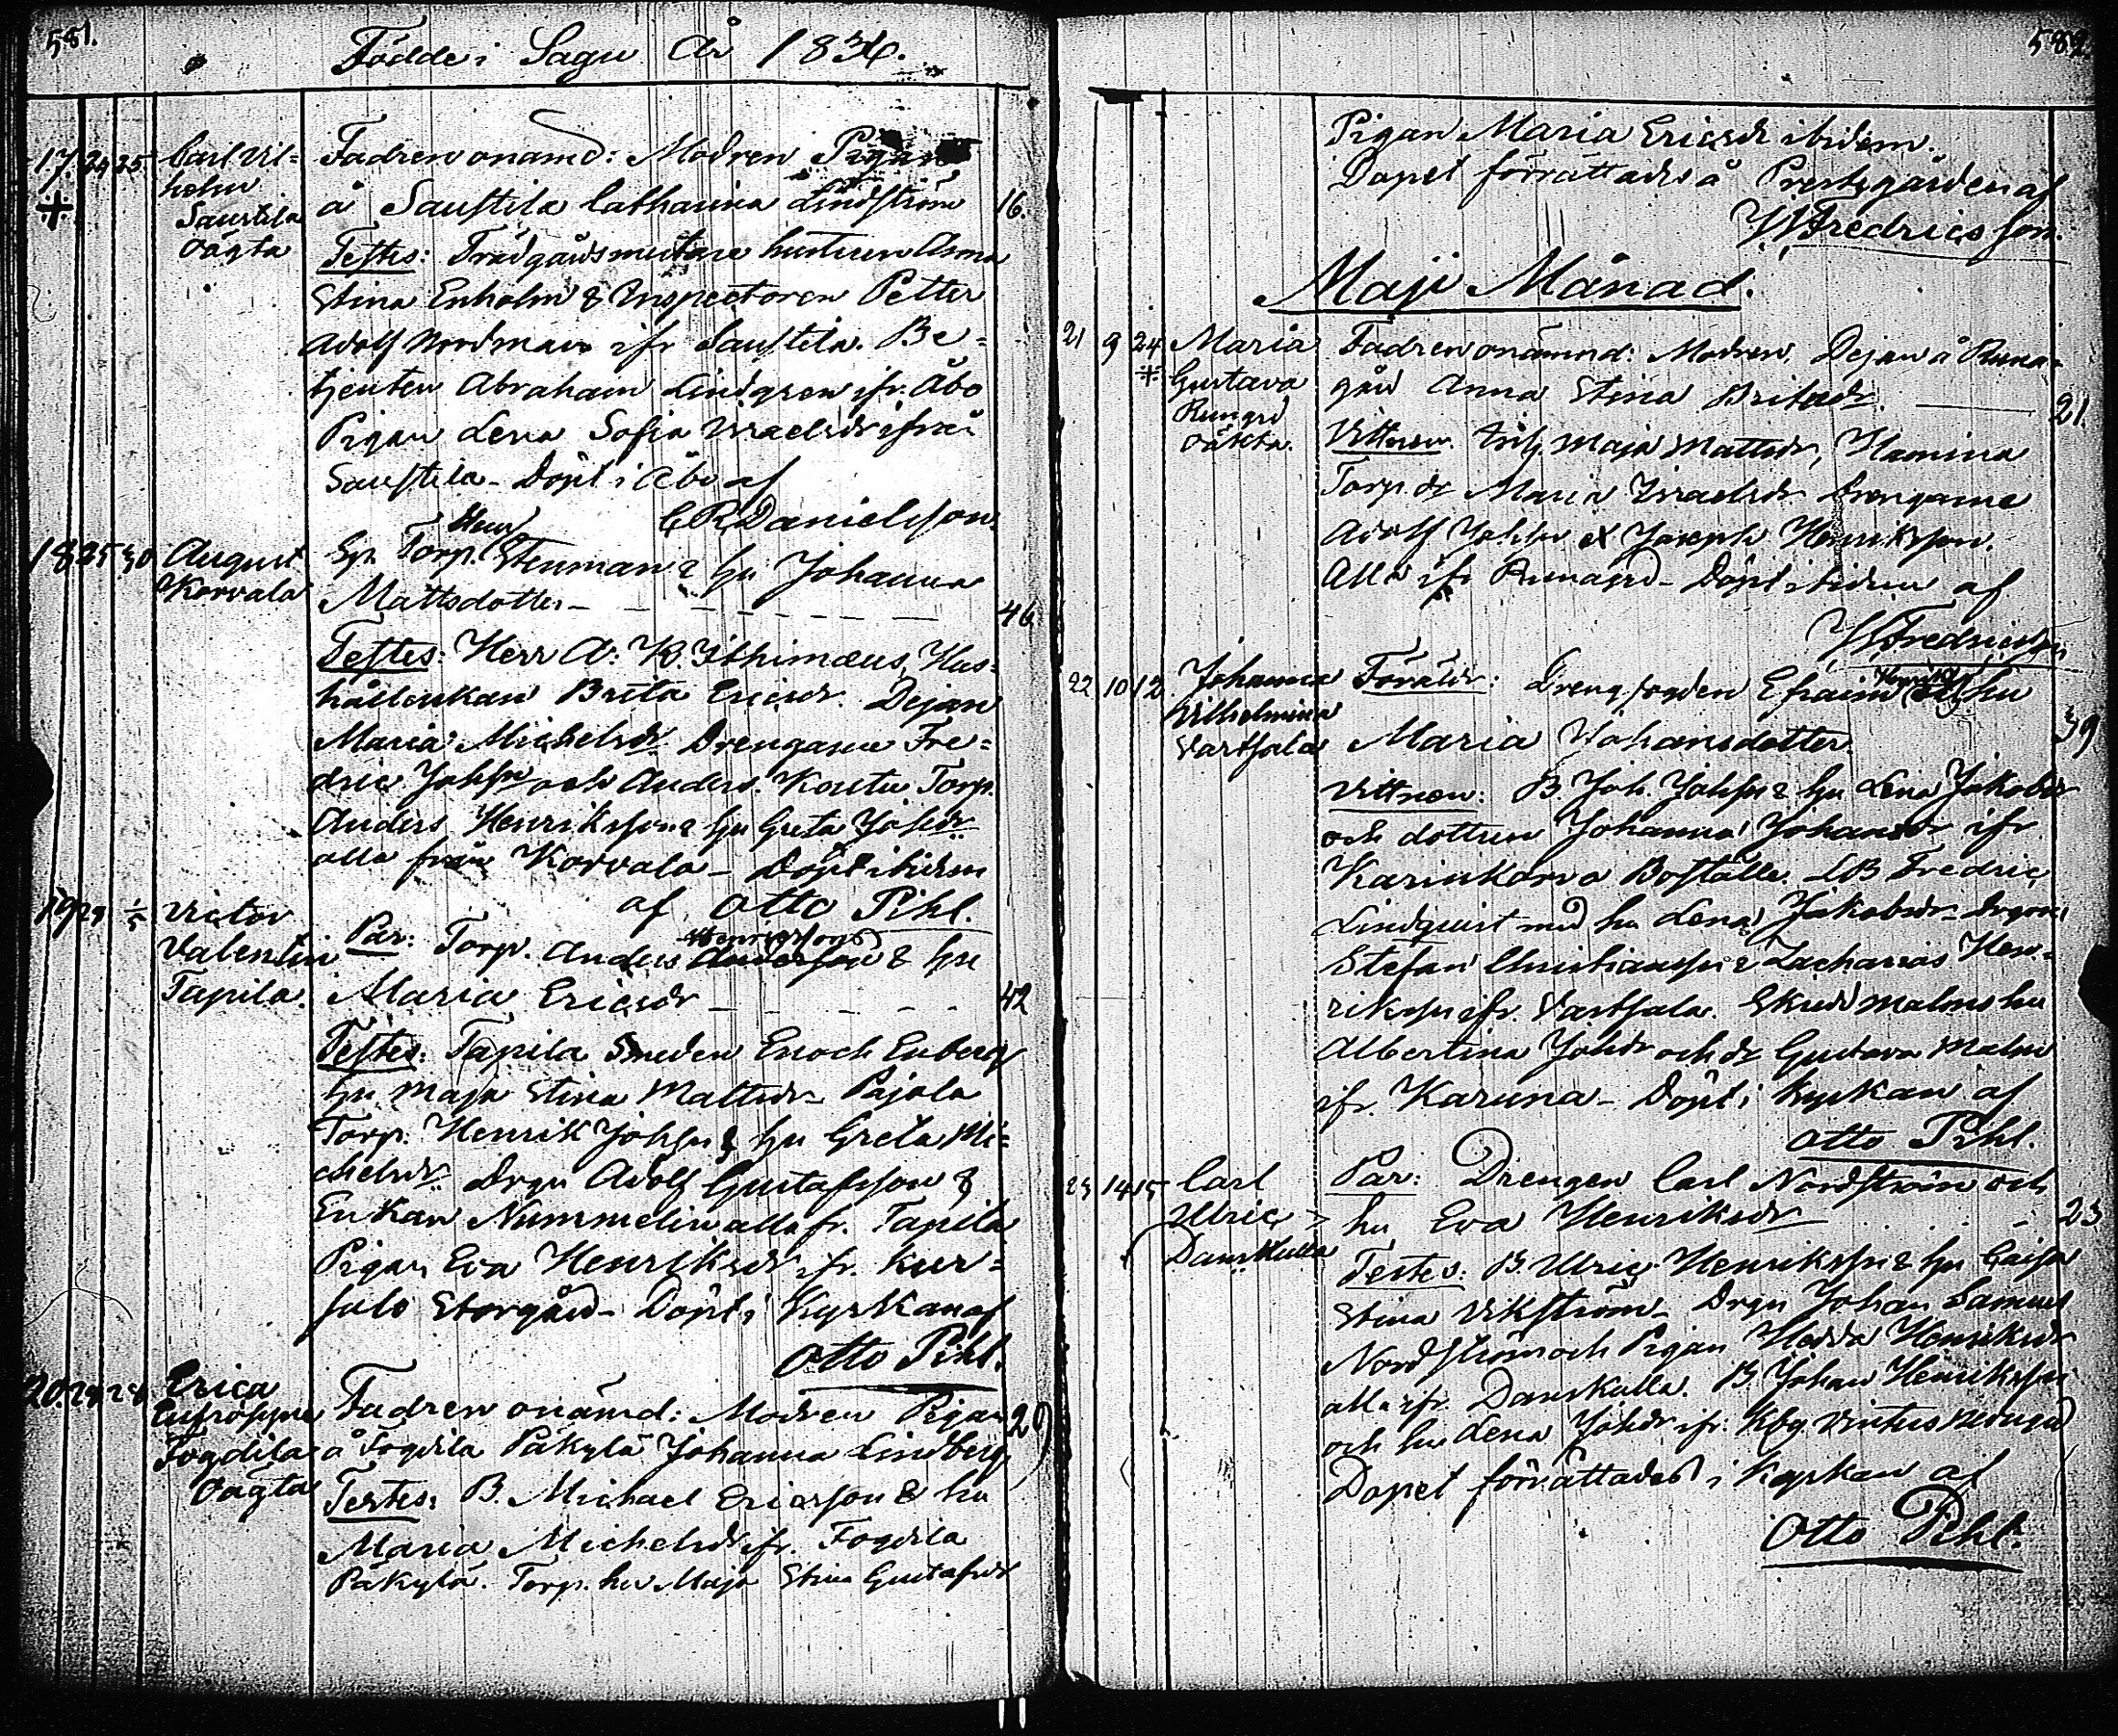 581.
Födde i Sagu År 1836.
17. 24 25 Carl Vil=
helm
Saustila
oägta
Fadren onämd: Modren Pigan
å Saustila Catharina Lindström 16.
Testes: Trädgårdsmästare hustrun Anna
Stina Enholm & Inspectoren Petter
Adolf Nordman ifr Saustila. Be=
tjenten Abraham Lindgren ifr. Åbo
Pigan Lena Sofia Israelsdr ifrån
Saustila - Döpt i Åbo af
C R Danielsson.
18 25 30 August
Korvala
Torp. Stenman & hu Johanna
Mattsdotter - - - - - 46
Testes: Herr A: K. Ithimæus, Hus=
hållerskan Brita Ericsdr. Dejan
Maria Michelsdr Drengarne Fre=
dric Johsn och Anders. Torp.
Anders Henriksson & hu Greta Johsdr
alla från Korvala - Döpt ibidem
af Otto Pihl.
19 29 1/5 Victor
Valentin
Tapila.
Par: Torp. Anders Henricsson & hu
Maria Ericsdr - - - - 42
Testes: Tapila Smeden Enoch Enberg
hu Maja Stina Mattsdr - Pajala
Torp. Henrik Johsn & hu Greta Mi=
chelsdr. Drgn Adolf Gustafsson &
Enkan Nummelin alla fr. Tapila
Pigan Eva Henriksdr ifr. Kur=
salo Storgård - Döpt i Kyrkan af
Otto Pihl.
20. 28 28 Erica
Eufrosyne
Fogdila
oägta
Fadren onämd: Modren Pigan 20
å Fogdila Påkylä Johanna Lindberg
Testes: B. Michael Ericsson & hu
Maria Michelsdr ifr. Fogdila
Påkylä. Torp. hu Maja Stina Gustafsdr
582
Pigan Maria Ericsdr ibidem.
Dopet förrättades å Prestgården af
W Fredricsson.
Maji Månad.
21 9 24 Maria
Gustava
Rungrd
oäkta.
Fadren onämnd: Modren, Dejan å Runa=
gård Anna Stina Britasdr. 21.
Vittnen. Maja Mattsdr, Hamina
Torp. dr Maria Israelsdr Drengarne
Adolf Johsn & Joseph Henriksson.
Alla ifr Runagrd - Döpt ibidem af
W Fredricsson
22 10 12 Johanna
Vilhelmina
Vartsala
Föräldr: Drengfogden Efraim & hu
Maria Johansdotter. 39
Vittnen: B. Joh. Johsn & hu Lena Jakobsdr
och dottren Johanna Johansdr ifr
Karinkorva Boställe. LB Fredric
Lindquist med hu Lena Jakobsdr - Drgne
Stefan Christiansson & Zacharias Hen=
riksson ifr. Vartsala. Skred Malms hu
Albertina Johsdr och dr Gustava Malm
ifr. Karuna - Döpt i kyrkan af
Otto Pihl.
23 14 15 Carl
Ulric
Danskulla
Par: Drengen Carl Nordström och
hu Eva Henriksdr 23
Testes: B. Ulric Henriksson & hu Caisa
Stina Vikström - Drgn Johan Samuel
Nordström och Pigan Hedda Henriksdr
alla ifr. Danskulla. B. Johan Henriksson
och hu Lena Johsdr ifr.
Dopet förrättades i Kyrkan af
Otto Pihl.